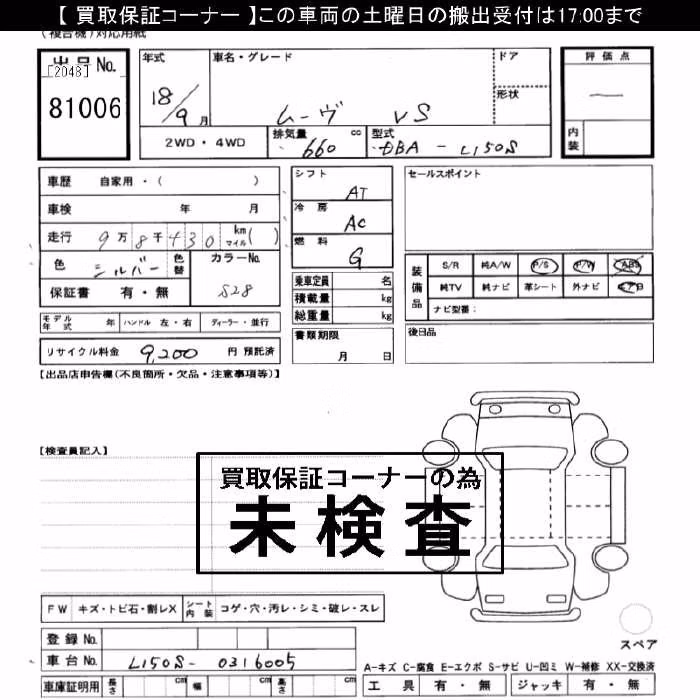 【 買取保証コーナー 】この車両の土曜日の搬出受付は17:00まで
(複合機)対応用紙
出品No.
[2048]
81006
年式
18/9月
車名・グレード
ムーヴ VS
ドア
形状
評価点
—
内装
2WD・4WD
排気量
660 cc
型式
DBA - L150S
車歴 自家用・( )
車検 年 月
走行 9万8千430 km マイル( )
色 シルバー 色替
カラーNo.
S28
保証書 有・無
シフト
AT
冷房
AC
燃料
G
乗車定員 名
積載量 kg
総重量 kg
セールスポイント
装備品
S/R 純A/W P/S P/W ABS
純TV 純ナビ 革シート 外ナビ エアB
ナビ型番:
モデル年式 年 ハンドル 左・右 ディーラー・並行
リサイクル料金 9,200 円 預託済
書類期限
月 日
後日品
【出品店申告欄(不良箇所・欠品・注意事項等)】
【検査員記入】
買取保証コーナーの為
未検査
FW キズ・トビ石・割レX シート内装 コゲ・穴・汚レ・シミ・破レ・スレ
登録No.
車台No. L150S- 0316005
車庫証明用 長さ cm 幅 cm 高さ cm
スペア
A-キズ C-腐食 E-エクボ S-サビ U-凹ミ W-補修 XX-交換済
工具 有・無 ジャッキ 有・無